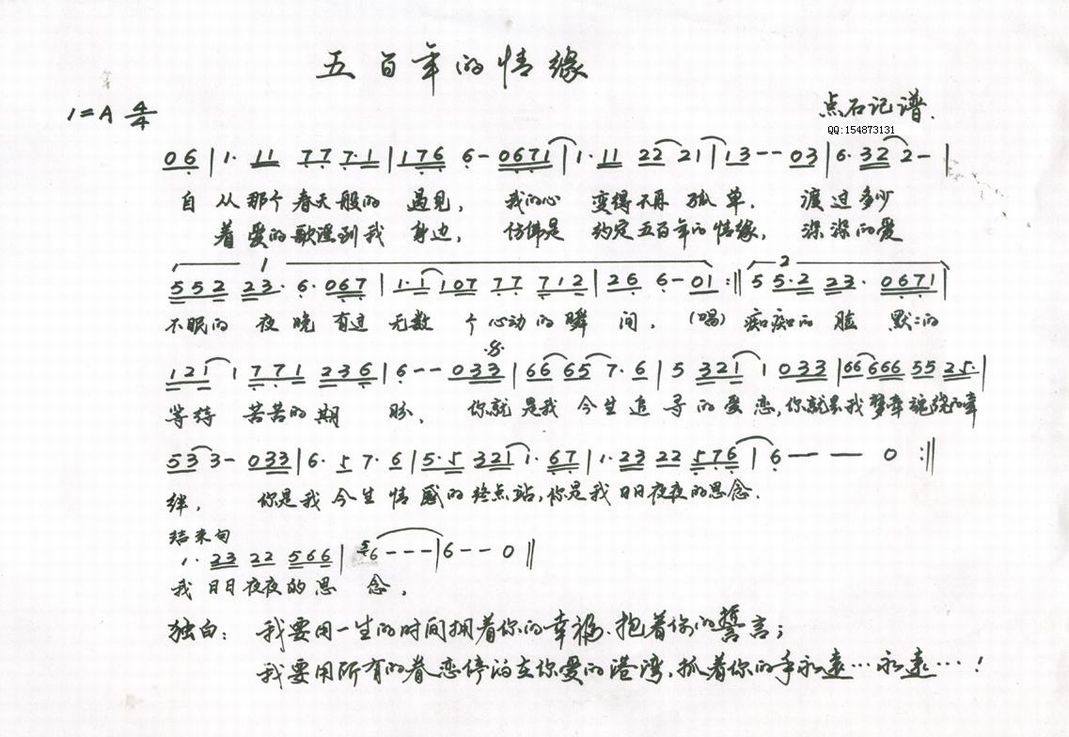 五百年的情缘
1=A 4/4
点石记谱.
QQ:154873131
06|1· 11 77 7·1|176 6- 0671|1·11 22 21|13-- 03|6· 32 2-|
自 从 那个 春天般的 遇见, 我的心 变得不再 孤单. 渡过多少
着 爱的歌谣到我 身边, 仿佛是 约定五百年的情缘, 深深的爱
1 2
552 23·6·067|1·1 107 77 712|26 6-01:‖5 5·2 23· 0671|
不眠的 夜晚 有过 无数 个心动的瞬 间. (唱) 痴痴的 脸 默:的
121 1 771 236|6-- 033|66 65 7·6|5 321 1 033|66 666 55 25·|
等待 苦苦的期 盼. 你就 是我 今生 追寻的爱恋,你就是我梦牵魂绕的牵
533- 033|6· 5 7· 6|5·5 321 1· 67|1·23 22 576|6— — — 0 :‖
绊, 你是我 今生情感的终点站,你是我日日夜夜的思念.
结束句
1· 23 22 566|56---|6-- 0‖
我日日夜夜的思 念.
独白: 我要用一生的时间拥着你的幸福.抱着你的誓言;
我要用所有的眷恋停泊在你爱的港湾,抓着你的手永远…永远…!